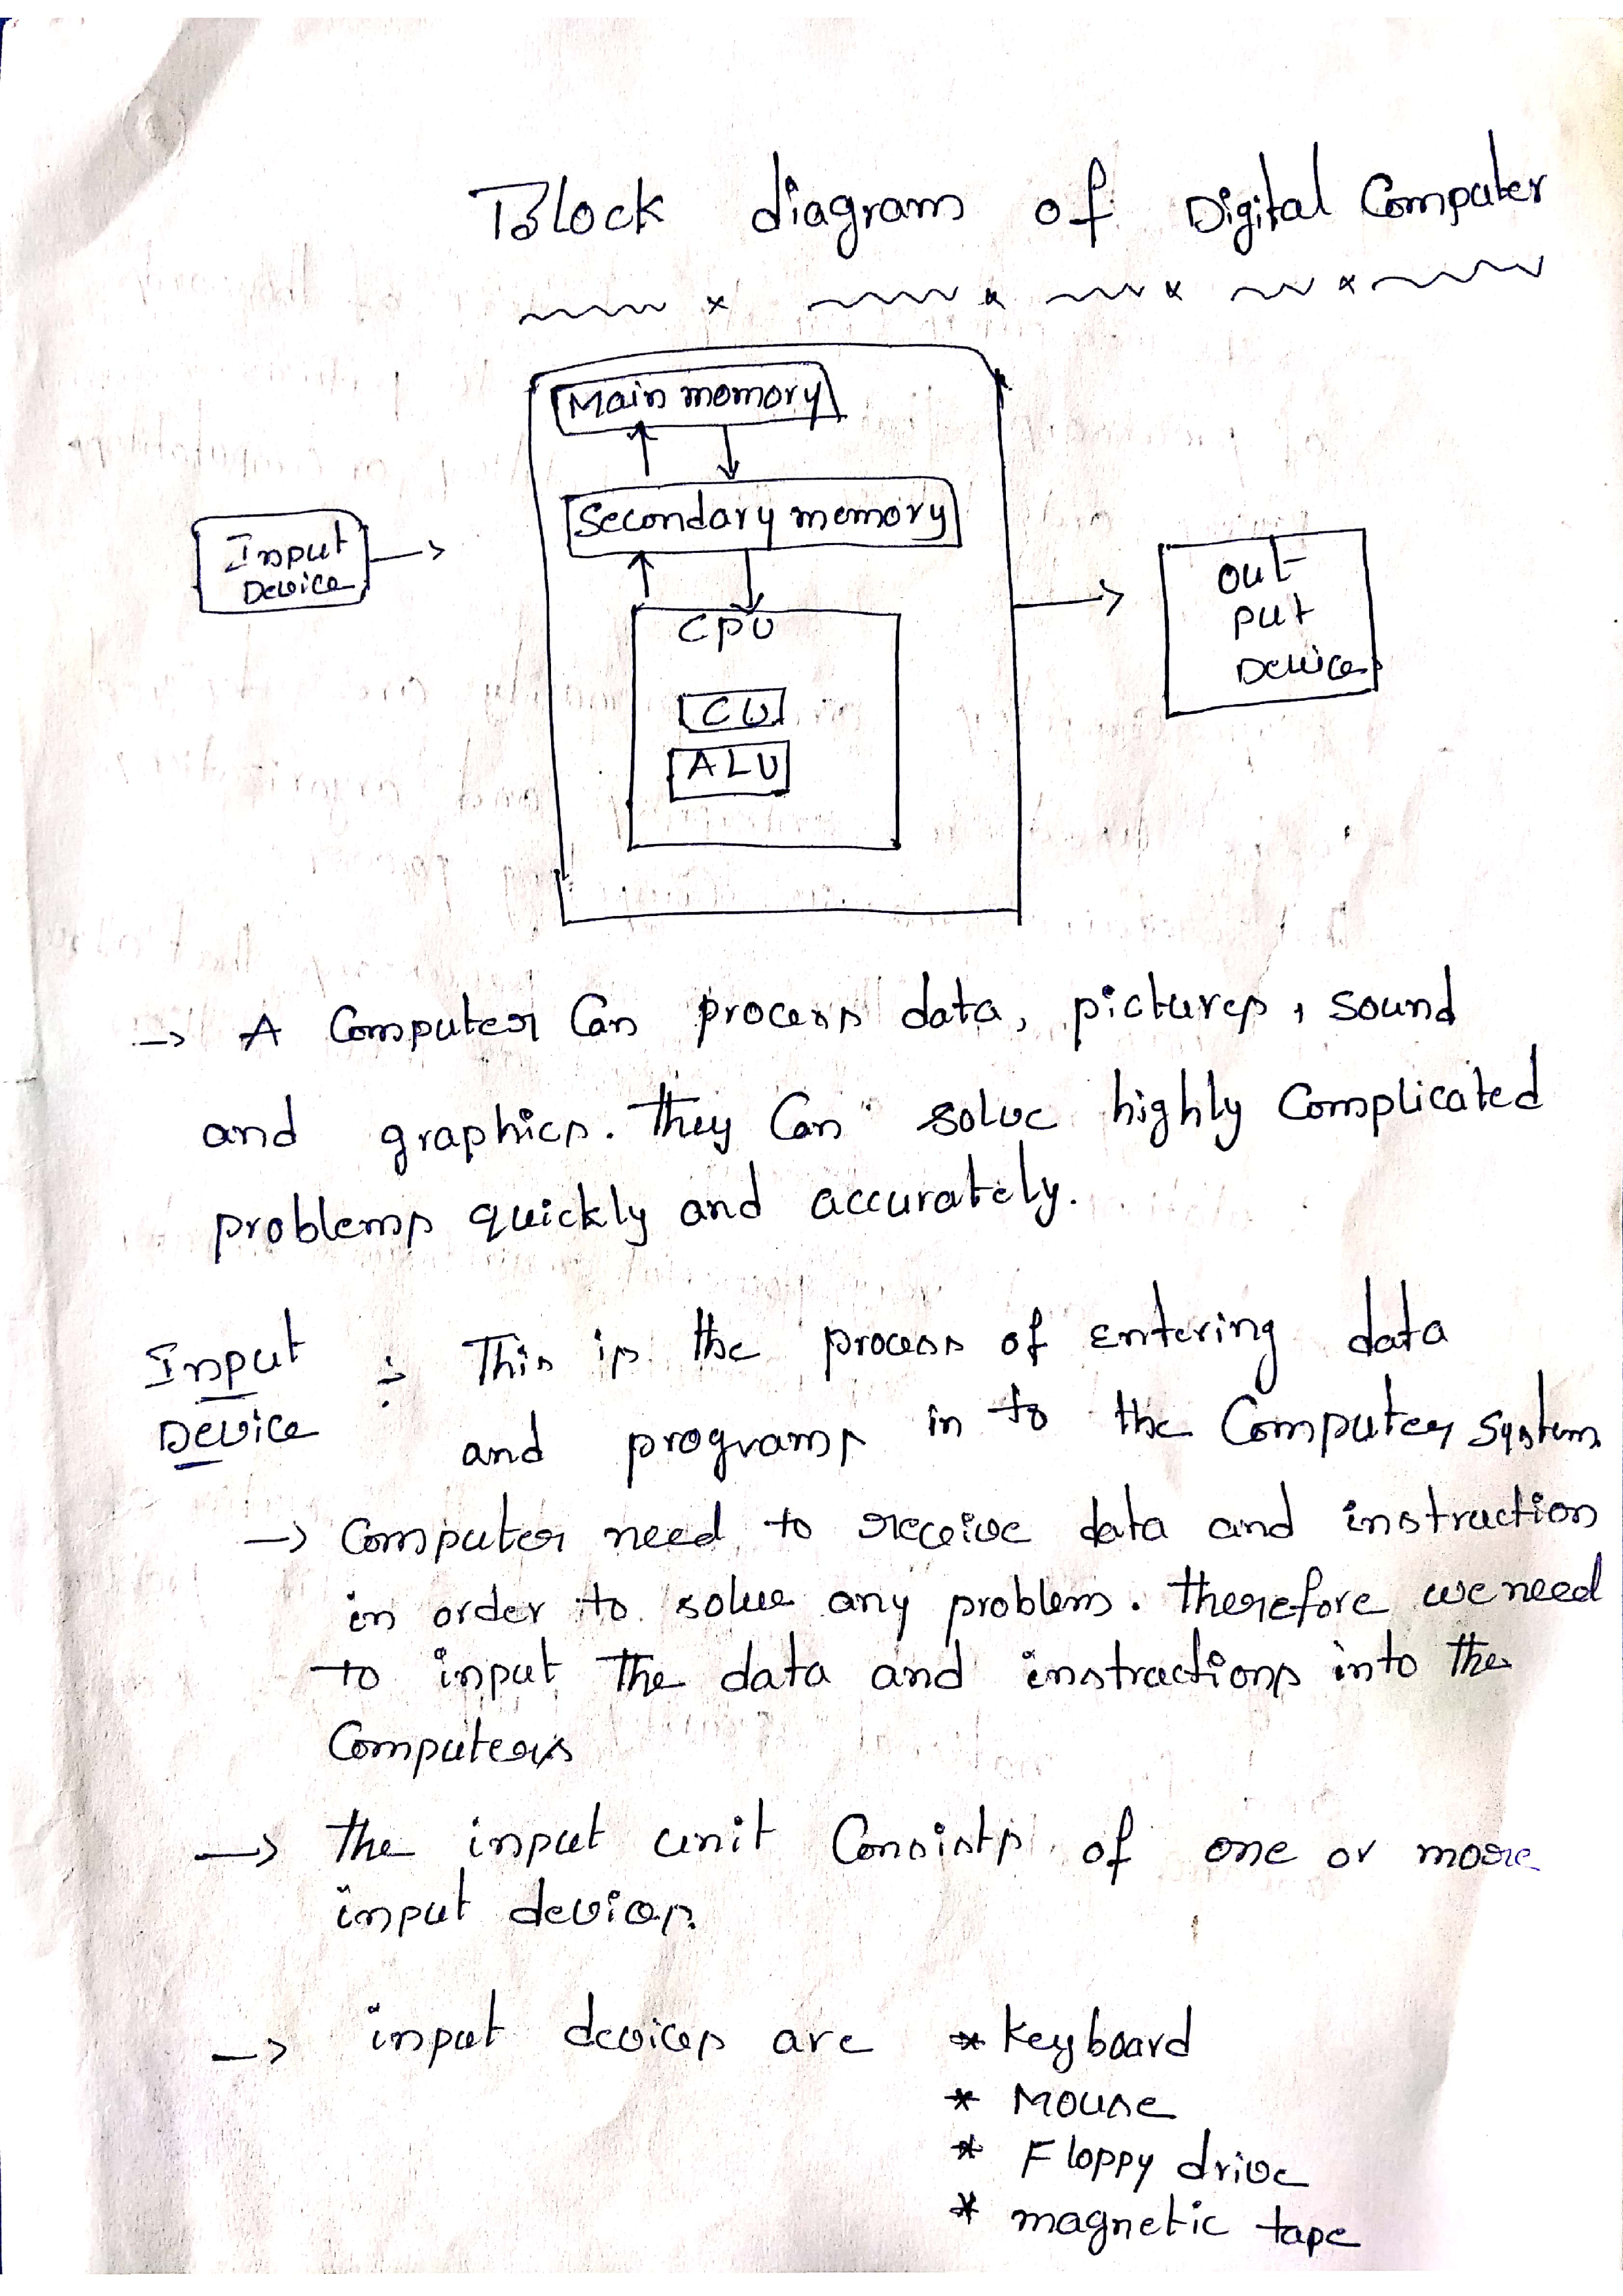 Block diagram of Digital Computer
Main memory
Secondary memory
Input
Device
CPU
CU
ALU
out
put
Device
→ A Computer Can process data, pictures, sound
and graphics. They Can solve highly Complicated
problems quickly and accurately.
Input : This is the process of entering data
Device
and programs in to the Computer system
→ Computer need to receive data and instruction
in order to solve any problem. Therefore we need
to input the data and instractions into the
Computers
→ The input unit Consists of one or more
input devices.
→ input devices are * Keyboard
* Mouse
* Floppy drive
* magnetic tape